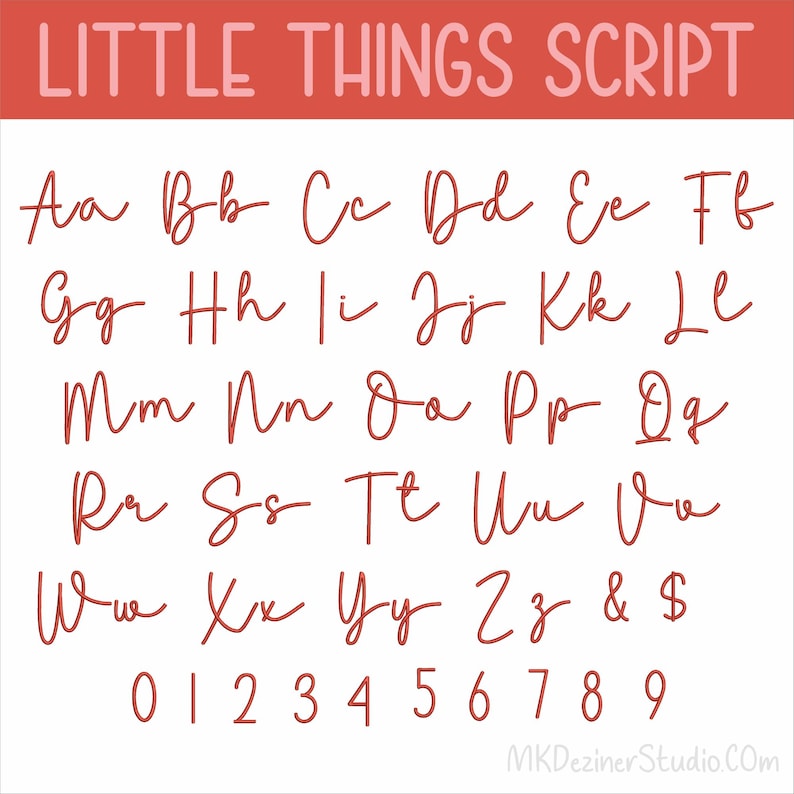 LITTLE THINGS SCRIPT
Aa Bb Cc Dd Ee Ff
Gg Hh Ii Jj Kk Ll
Mm Nn Oo Pp Qq
Rr Ss Tt Uu Vv
Ww Xx Yy Zz & $
0 1 2 3 4 5 6 7 8 9
MKDezinerStudio.COm